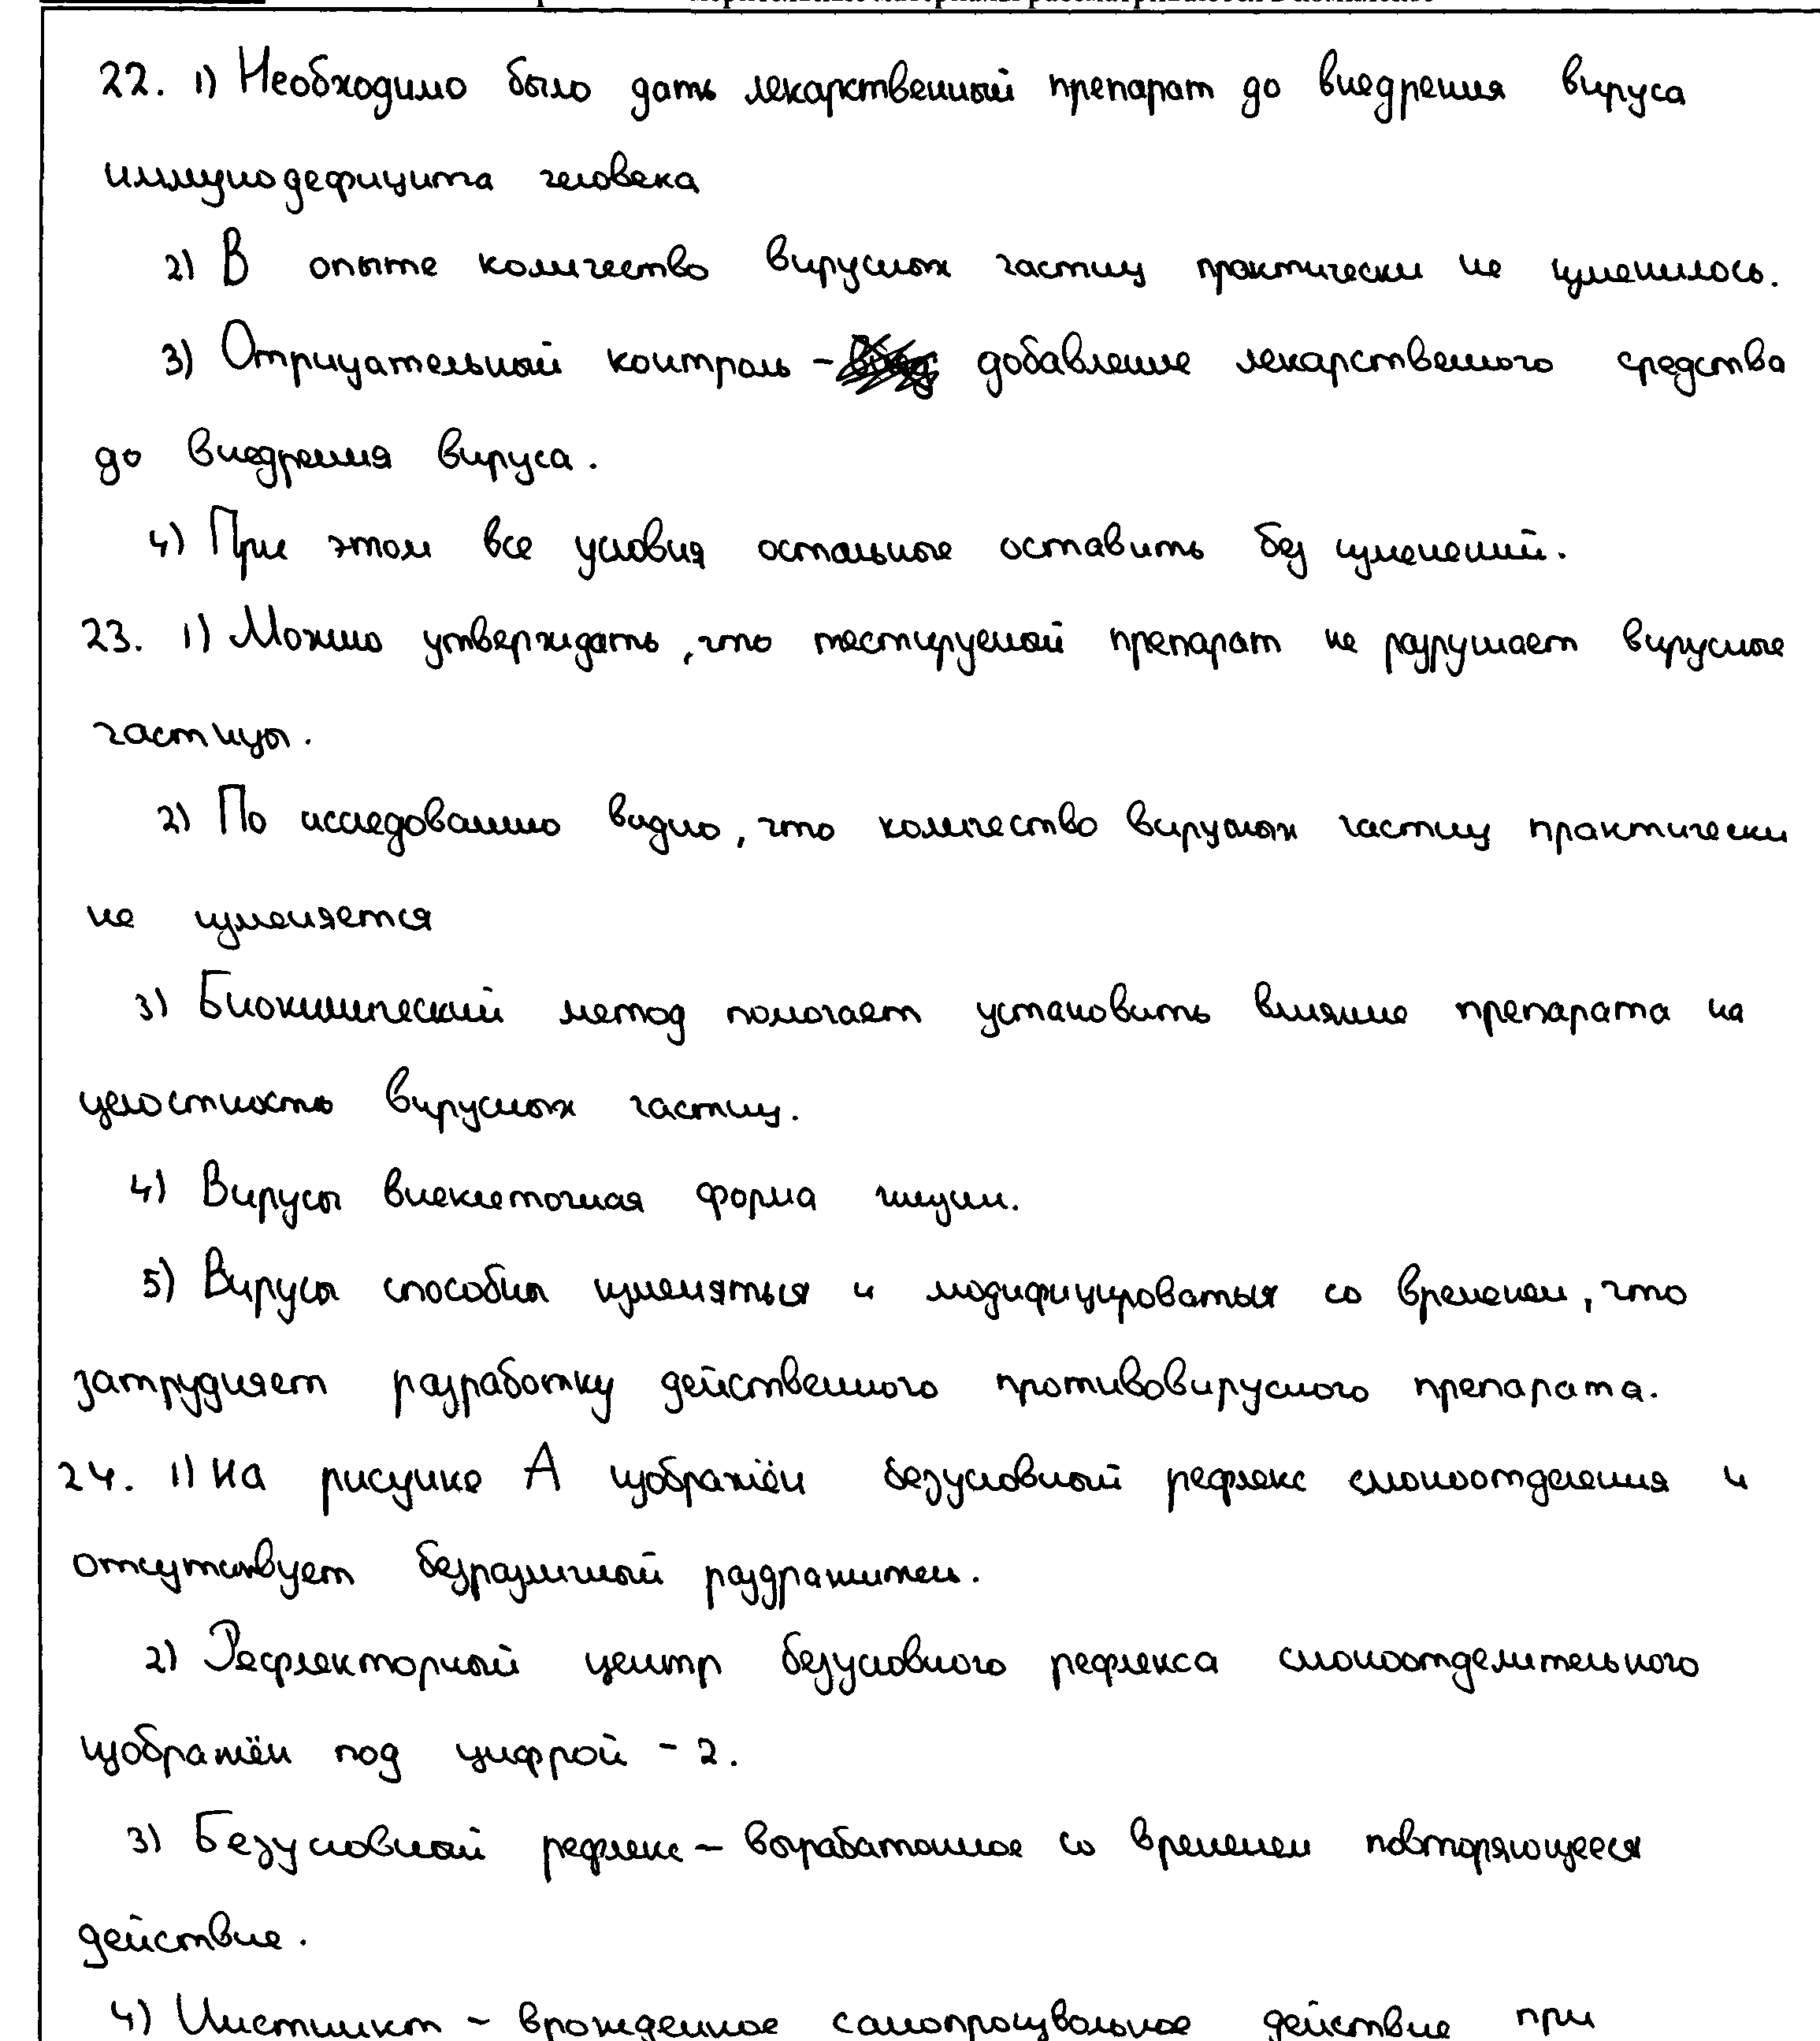 22. 1) Необходимо было дать лекарственный препарат до внедрения вируса
иммунодефицита человека
2) В опыте количество вирусных частиц практически не изменилось.
3) Отрицательный контроль - добавление лекарственного средства
до внедрения вируса.
4) При этом все условия остальные оставить без изменений.
23. 1) Можно утверждать, что тестируемый препарат не разрушает вирусные
частицы.
2) По исследованию видно, что количество вирусных частиц практически
не изменяется
3) Биохимический метод помогает установить влияние препарата на
целостность вирусных частиц.
4) Вирусы внеклеточная форма жизни.
5) Вирусы способны изменяться и модифицироваться со временем, что
затрудняет разработку действенного противовирусного препарата.
24. 1) На рисунке А изображён безусловный рефлекс слюноотделения и
отсутствует безразличный раздражитель.
2) Рефлекторный центр безусловного рефлекса слюноотделительного
изображён под цифрой - 2.
3) Безусловный рефлекс - выработанное со временем повторяющееся
действие.
4) Инстинкт - врожденное самопроизвольное действие при